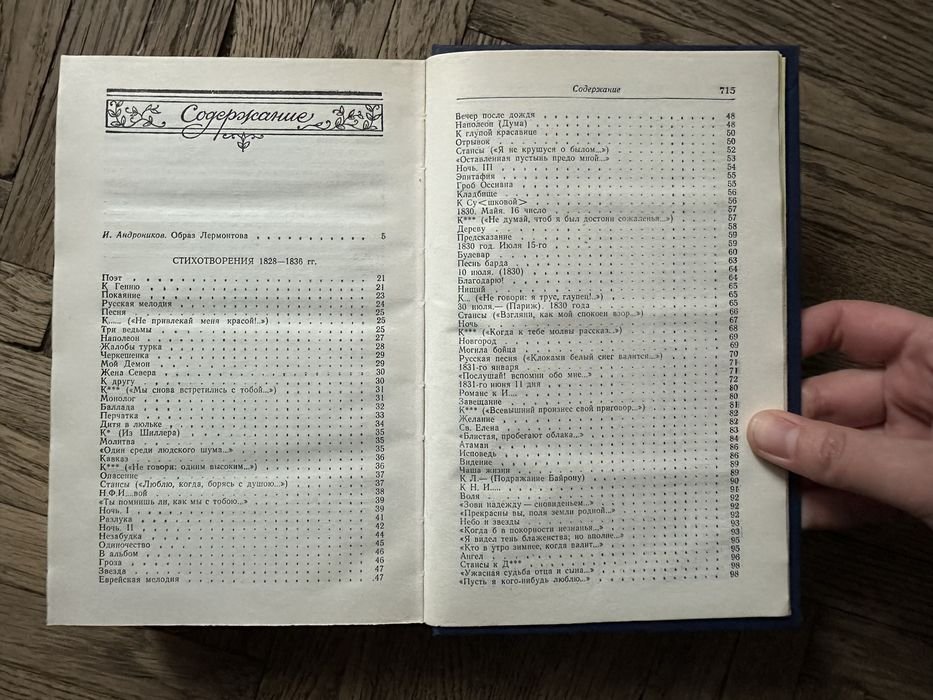 Содержание
И. Андроников. Образ Лермонтова 5
СТИХОТВОРЕНИЯ 1828—1836 гг.
Поэт 21
К Гению 21
Покаяние 23
Русская мелодия 24
Песня 25
К..... («Не привлекай меня красой!..») 25
Три ведьмы 25
Наполеон 27
Жалобы турка 28
Черкешенка 29
Мой Демон 29
Жена Севера 30
К другу 30
К*** («Мы снова встретились с тобой...») 31
Монолог 31
Баллада 32
Перчатка 33
Дитя в люльке 34
К* (Из Шиллера) 35
Молитва 35
«Один среди людского шума...» 35
Кавказ 36
К*** («Не говори: одним высоким...») 36
Опасение 37
Стансы («Люблю, когда, борясь с душою...») 37
Н.Ф.И....вой 38
«Ты помнишь ли, как мы с тобою...» 39
Ночь. I 39
Разлука 41
Ночь. II 42
Незабудка 44
Одиночество 45
В альбом 46
Гроза 46
Звезда 47
Еврейская мелодия 47
Содержание 715
Вечер после дождя 48
Наполеон (Дума) 48
К глупой красавице 50
Отрывок 50
Стансы («Я не крушуся о былом...») 52
«Оставленная пустынь предо мной...» 53
Ночь. III 54
Эпитафия 55
Гроб Оссиана 55
Кладбище 56
К Су<шковой> 56
1830. Майя. 16 число 57
К*** («Не думай, чтоб я был достоин сожаленья...») 57
Дереву 58
Предсказание 59
1830 год. Июля 15-го 59
Булевар 60
Песнь барда 63
10 июля. (1830) 64
Благодарю! 64
Нищий 65
К... («Не говори: я трус, глупец!..») 65
30 июля.— (Париж). 1830 года 65
Стансы («Взгляни, как мой спокоен взор...») 66
Ночь 67
К*** («Когда к тебе молвы рассказ...») 68
Новгород 69
Могила бойца 69
Русская песня («Клоками белый снег валится...») 70
1831-го января 71
«Послушай! вспомни обо мне...» 71
1831-го июня 11 дня 72
Романс к И.... 80
Завещание 80
К*** («Всевышний произнес свой приговор...») 81
Желание 82
Св. Елена 82
«Блистая, пробегают облака...» 83
Атаман 84
Исповедь 86
Видение 86
Чаша жизни 89
К Л.— (Подражание Байрону) 90
К Н. И..... 91
Воля 92
«Зови надежду — сновиденьем...» 92
«Прекрасны вы, поля земли родной...» 92
Небо и звезды 93
«Когда б в покорности незнанья...» 93
«Я видел тень блаженства; но вполне...» 95
«Кто в утро зимнее, когда валит...» 95
Ангел 96
Стансы к Д*** 98
«Ужасная судьба отца и сына...» 98
«Пусть я кого-нибудь люблю...»